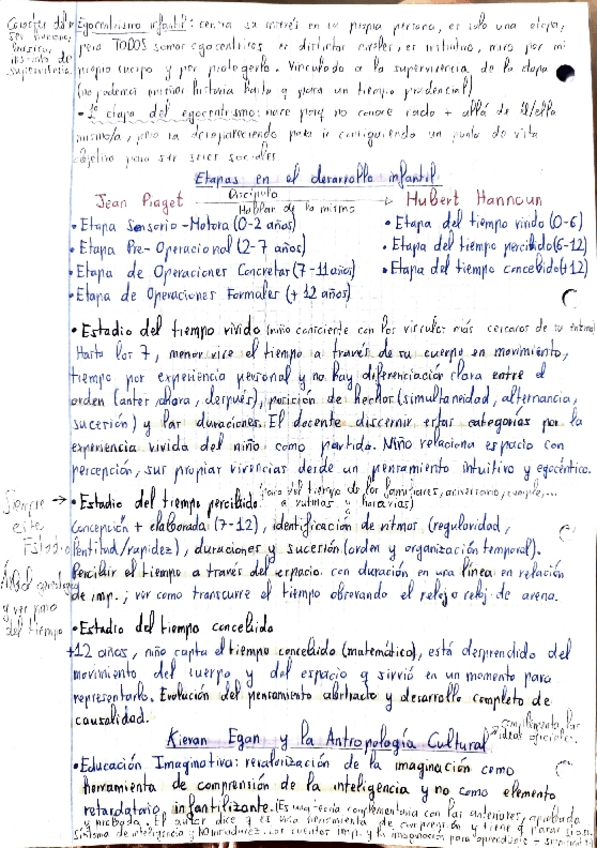 Egocentrismo infantil: centra su interés en su propia persona, es solo una etapa,
pero TODOS somos egocéntricos en distintos niveles, es instintivo, miro por mi
propio cuerpo y por protegerlo. Vinculado a la supervivencia de la etapa
(no podemos enseñar historia hasta q pasa un tiempo prudencial)
• 1ª etapa del egocentrismo: nace porq no conoce nada + allá de él/ella
mismo/a, pero va desapareciendo para ir consiguiendo un punto de vista
objetivo para ser seres sociales
Etapas en el desarrollo infantil
Jean Piaget Discípulo Hubert Hannoun
Hablar de lo mismo
• Etapa Sensorio-Motora (0-2 años)
• Etapa Pre-Operacional (2-7 años)
• Etapa de Operaciones Concretas (7-11 años)
• Etapa de Operaciones Formales (+ 12 años)
• Etapa del tiempo vivido (0-6)
• Etapa del tiempo percibido (6-12)
• Etapa del tiempo concebido (+12)
• Estadio del tiempo vivido (niño consciente con los más cercanos de su entorno)
Hasta los 7, menor vive el tiempo a través de su cuerpo en movimiento,
tiempo por experiencia personal y no hay diferenciación clara entre el
orden (antes, ahora, después), posición de hechos (simultaneidad, alternancia,
sucesión) y las duraciones. El docente discernir estas categorías por la
experiencia vivida del niño como partida. Niño relaciona espacio con
percepción, sus propias vivencias desde un pensamiento intuitivo y egocéntrico.
Siempre →
este
Estadio
• Estadio del tiempo percibido (paso del tiempo de los familiares, aniversario, cumple,...
a rutinas y horarios)
Concepción + elaborada (7-12), identificación de ritmos (regularidad,
lentitud/rapidez), duraciones y sucesión (orden y organización temporal).
Percibir el tiempo a través del espacio con duración en una línea en relación
de imp.; ver como transcurre el tiempo observando el reloj o reloj de arena.
y ver paso
del tiempo
• Estadio del tiempo concebido
+12 años, niño capta el tiempo concebido (matemático), está desprendido del
movimiento del cuerpo y del espacio q sirvió en un momento para
representarlo. Evolución del pensamiento abstracto y desarrollo completo de
causalidad.
Kieran Egan y la Antropología Cultural
complementa las
ideas oficiales.
• Educación Imaginativa: revalorización de la imaginación como
herramienta de comprensión de la inteligencia y no como elemento
retardatario infantilizante. (Es una teoría complementaria con las anteriores, aprobada
y probada. El autor dice q es una herramienta de comprensión y tiene q
síntoma de inteligencia y NO inmadurez. cuentos imp. y la imaginación para aprendizaje